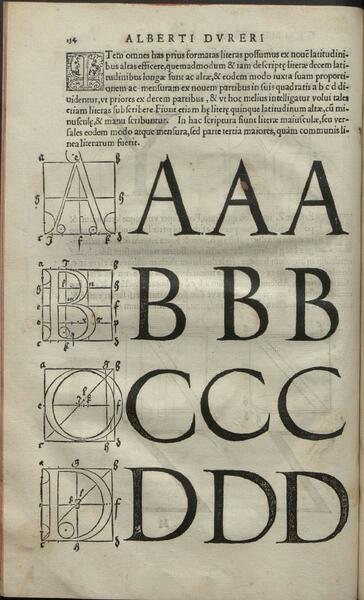 134 ALBERTI DVRERI
ITem omnes has prius formatas literas possumus ex nouē latitudini-
bus altas efficere, quemadmodum & iam descriptę literæ decem lati-
tudinibus longæ sunt ac altæ, & eodem modo iuxta suam proporti-
onem ac mensuram ex nouem partibus in suis quadratis a b c d di-
uidentur, vt priores ex decem partibus, & vt hoc melius intelligatur volui tales
etiam literas subscribere Fiunt etiam hę literę quinque latitudinum altæ, cū mi-
nusculę, & manu scribuntur. In hac scriptura fiunt literæ maiusculæ, seu ver-
sales eodem modo atque mensura, sed parte tertia maiores, quàm communis li-
nea literarum fuerit.
A A A A
B B B B
C C C C
D D D D